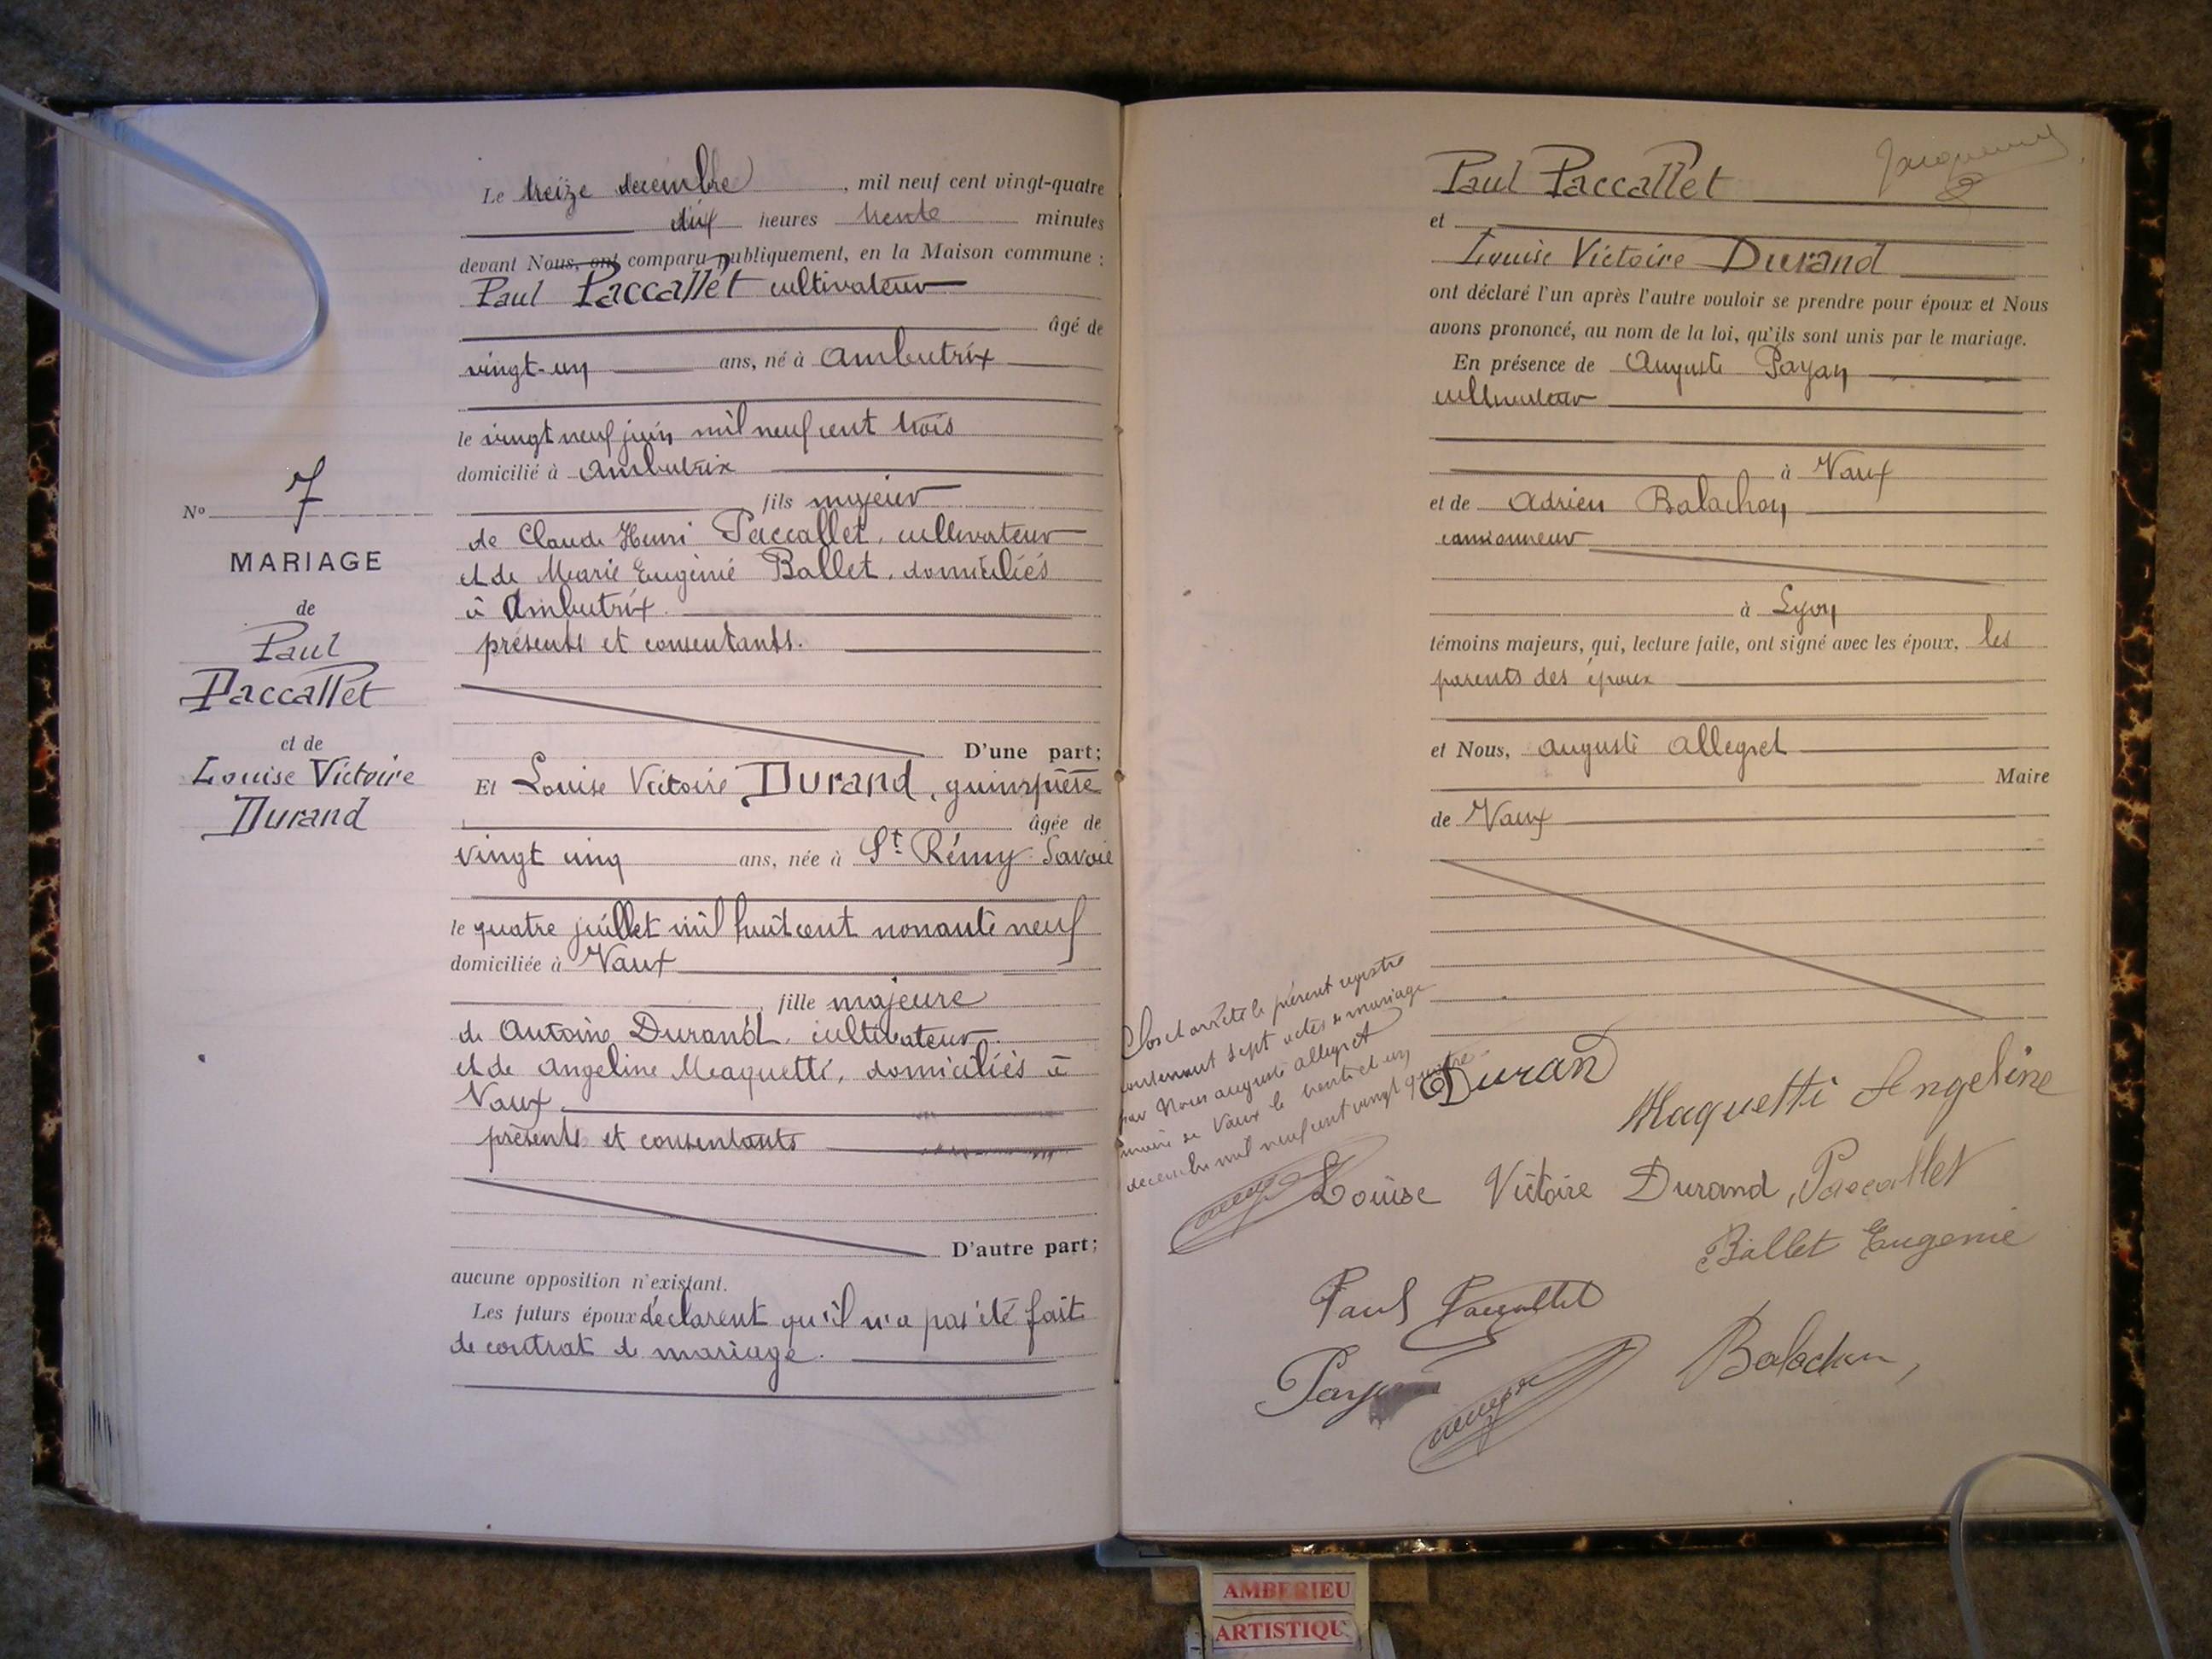 Le treize décembre, mil neuf cent vingt-quatre
dix heures trente minutes
devant Nous, ont comparu publiquement, en la Maison commune :
Paul Paccallet cultivateur
âgé de
vingt-un ans, né à Ambutrix
le vingt neuf juin mil neuf cent trois
domicilié à Ambutrix
fils majeur
de Claude Henri Paccallet, cultivateur
et de Marie Eugénie Ballet, domiciliés
à Ambutrix.
présents et consentants.
D'une part;
Et Louise Victoire Durand, guimpière
âgée de
vingt cinq ans, née à St Rémy Savoie
le quatre juillet mil huit cent nonante neuf
domiciliée à Vaux
fille majeure
de Antoine Durand, cultivateur
et de Angeline Maquetti, domiciliés à
Vaux
présents et consentants
D'autre part;
aucune opposition n'existant.
Les futurs époux déclarent qu'il n'a pas été fait
de contrat de mariage.
No 7
MARIAGE
de
Paul
Paccallet
et de
Louise Victoire
Durand
Paul Paccallet
et
Louise Victoire Durand
ont déclaré l'un après l'autre vouloir se prendre pour époux et Nous
avons prononcé, au nom de la loi, qu'ils sont unis par le mariage.
En présence de Auguste Payan
cultivateur
à Vaux
et de Adrien Balachon
camionneur
à Lyon
témoins majeurs, qui, lecture faite, ont signé avec les époux, les
parents des époux
et Nous, Auguste Allegret
Maire
de Vaux
Clos et arrêté le présent registre
contenant sept actes de mariage
par Nous Auguste Allegret
maire de Vaux le trente et un
décembre mil neuf cent vingt quatre.
Duran
Maquetti Angeline
Louise Victoire Durand, Paccallet
Ballet Eugenie
Paul Paccallet
Payan
Balachon,
AMBERIEU
ARTISTIQU